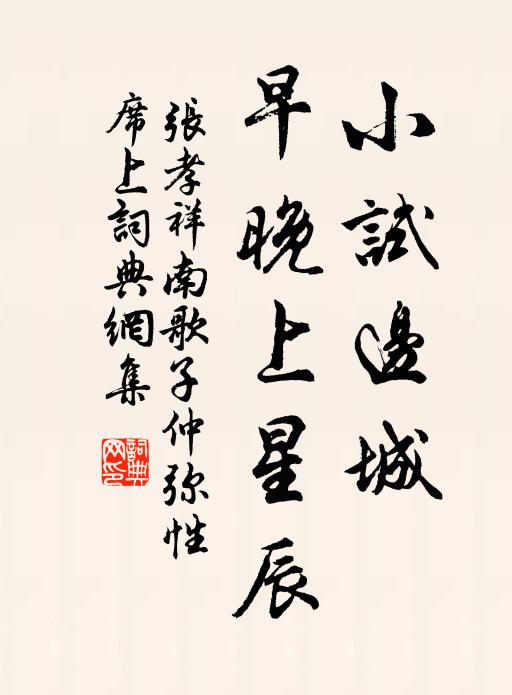 小試邊城
早晚上星辰
張孝祥南歌子仲弥性
席上詞典網集
詞典
网印